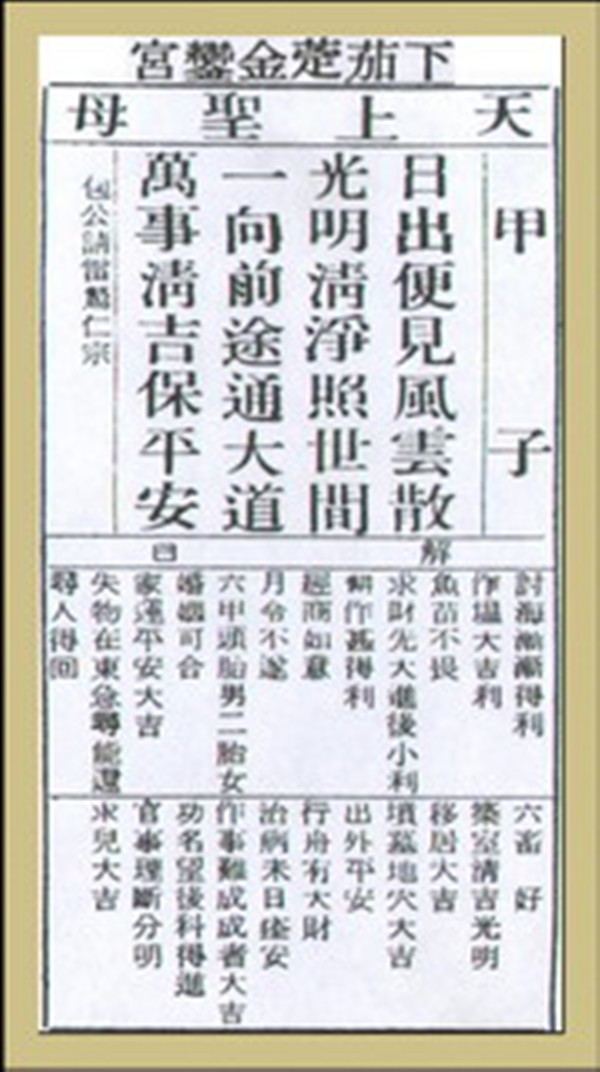 下茄萣金鑾宮
天上聖母
甲子
日出便見風雲散
光明清淨照世間
一向前途通大道
萬事清吉保平安
包公請雷驚仁宗
解曰
討海漸漸得利
作塭大吉利
魚苗不畏
求財先大進後小利
耕作甚得利
經商如意
月令不遂
六甲頭胎男二胎女
婚姻可合
家運平安大吉
失物在東急尋能還
尋人得回
六畜 好
築室清吉光明
移居大吉
墳墓地穴大吉
出外平安
行舟有大財
治病未日痊安
作事難成成者大吉
功名望後科得進
官事理斷分明
求兒大吉